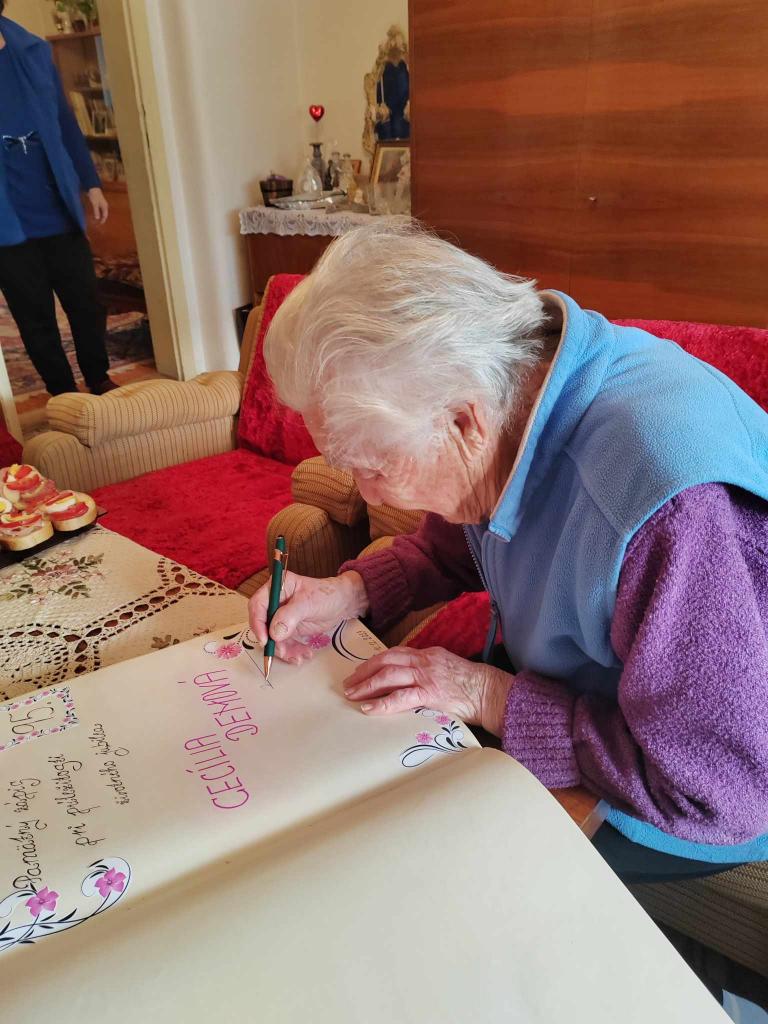 95.
Pamätný zápis
pri príležitosti
životného jubilea
CECÍLIA
DEMOVÁ